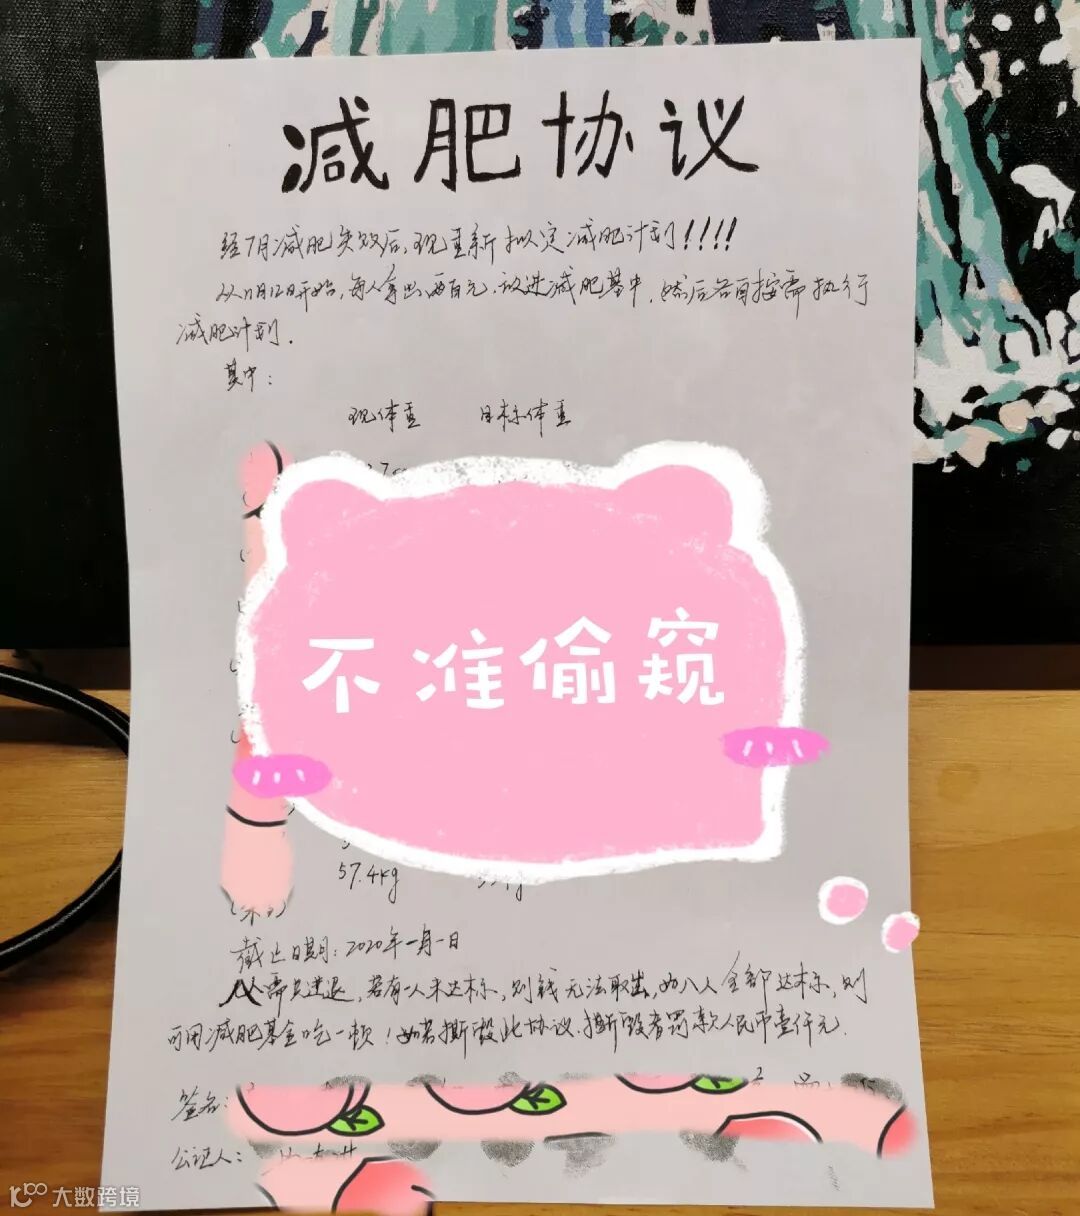 减肥协议
经7月减肥失败后,现重新拟定减肥计划!!!!
从11月12日开始,每人拿出两百元,放进减肥基中,然后各自按需执行
减肥计划.
其中:
现体重 目标体重
不准偷窥
57.4kg
截止日期:2020年一月一日
八人需共进退,若有一人未达标,则钱无法取出,如八人全部达标,则
可用减肥基金吃一顿!如若撕毁此协议,撕毁者罚款人民币壹仟元.
签名:
公证人:
大数跨境